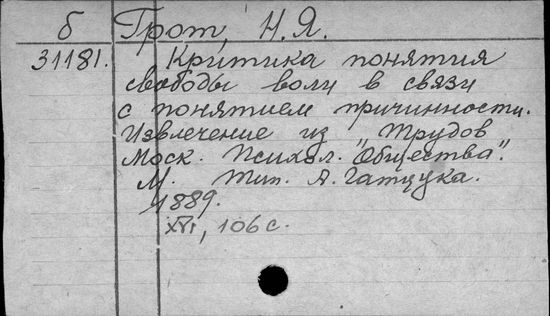 б Грот, Н.Я.
31181. Критика понятия
свободы воли в связи
с понятием причинности.
Извлечение из "Трудов
Моск. Психол. "Общества".
М. Тип. А. Гатцука.
1889.
XVI, 106 с.